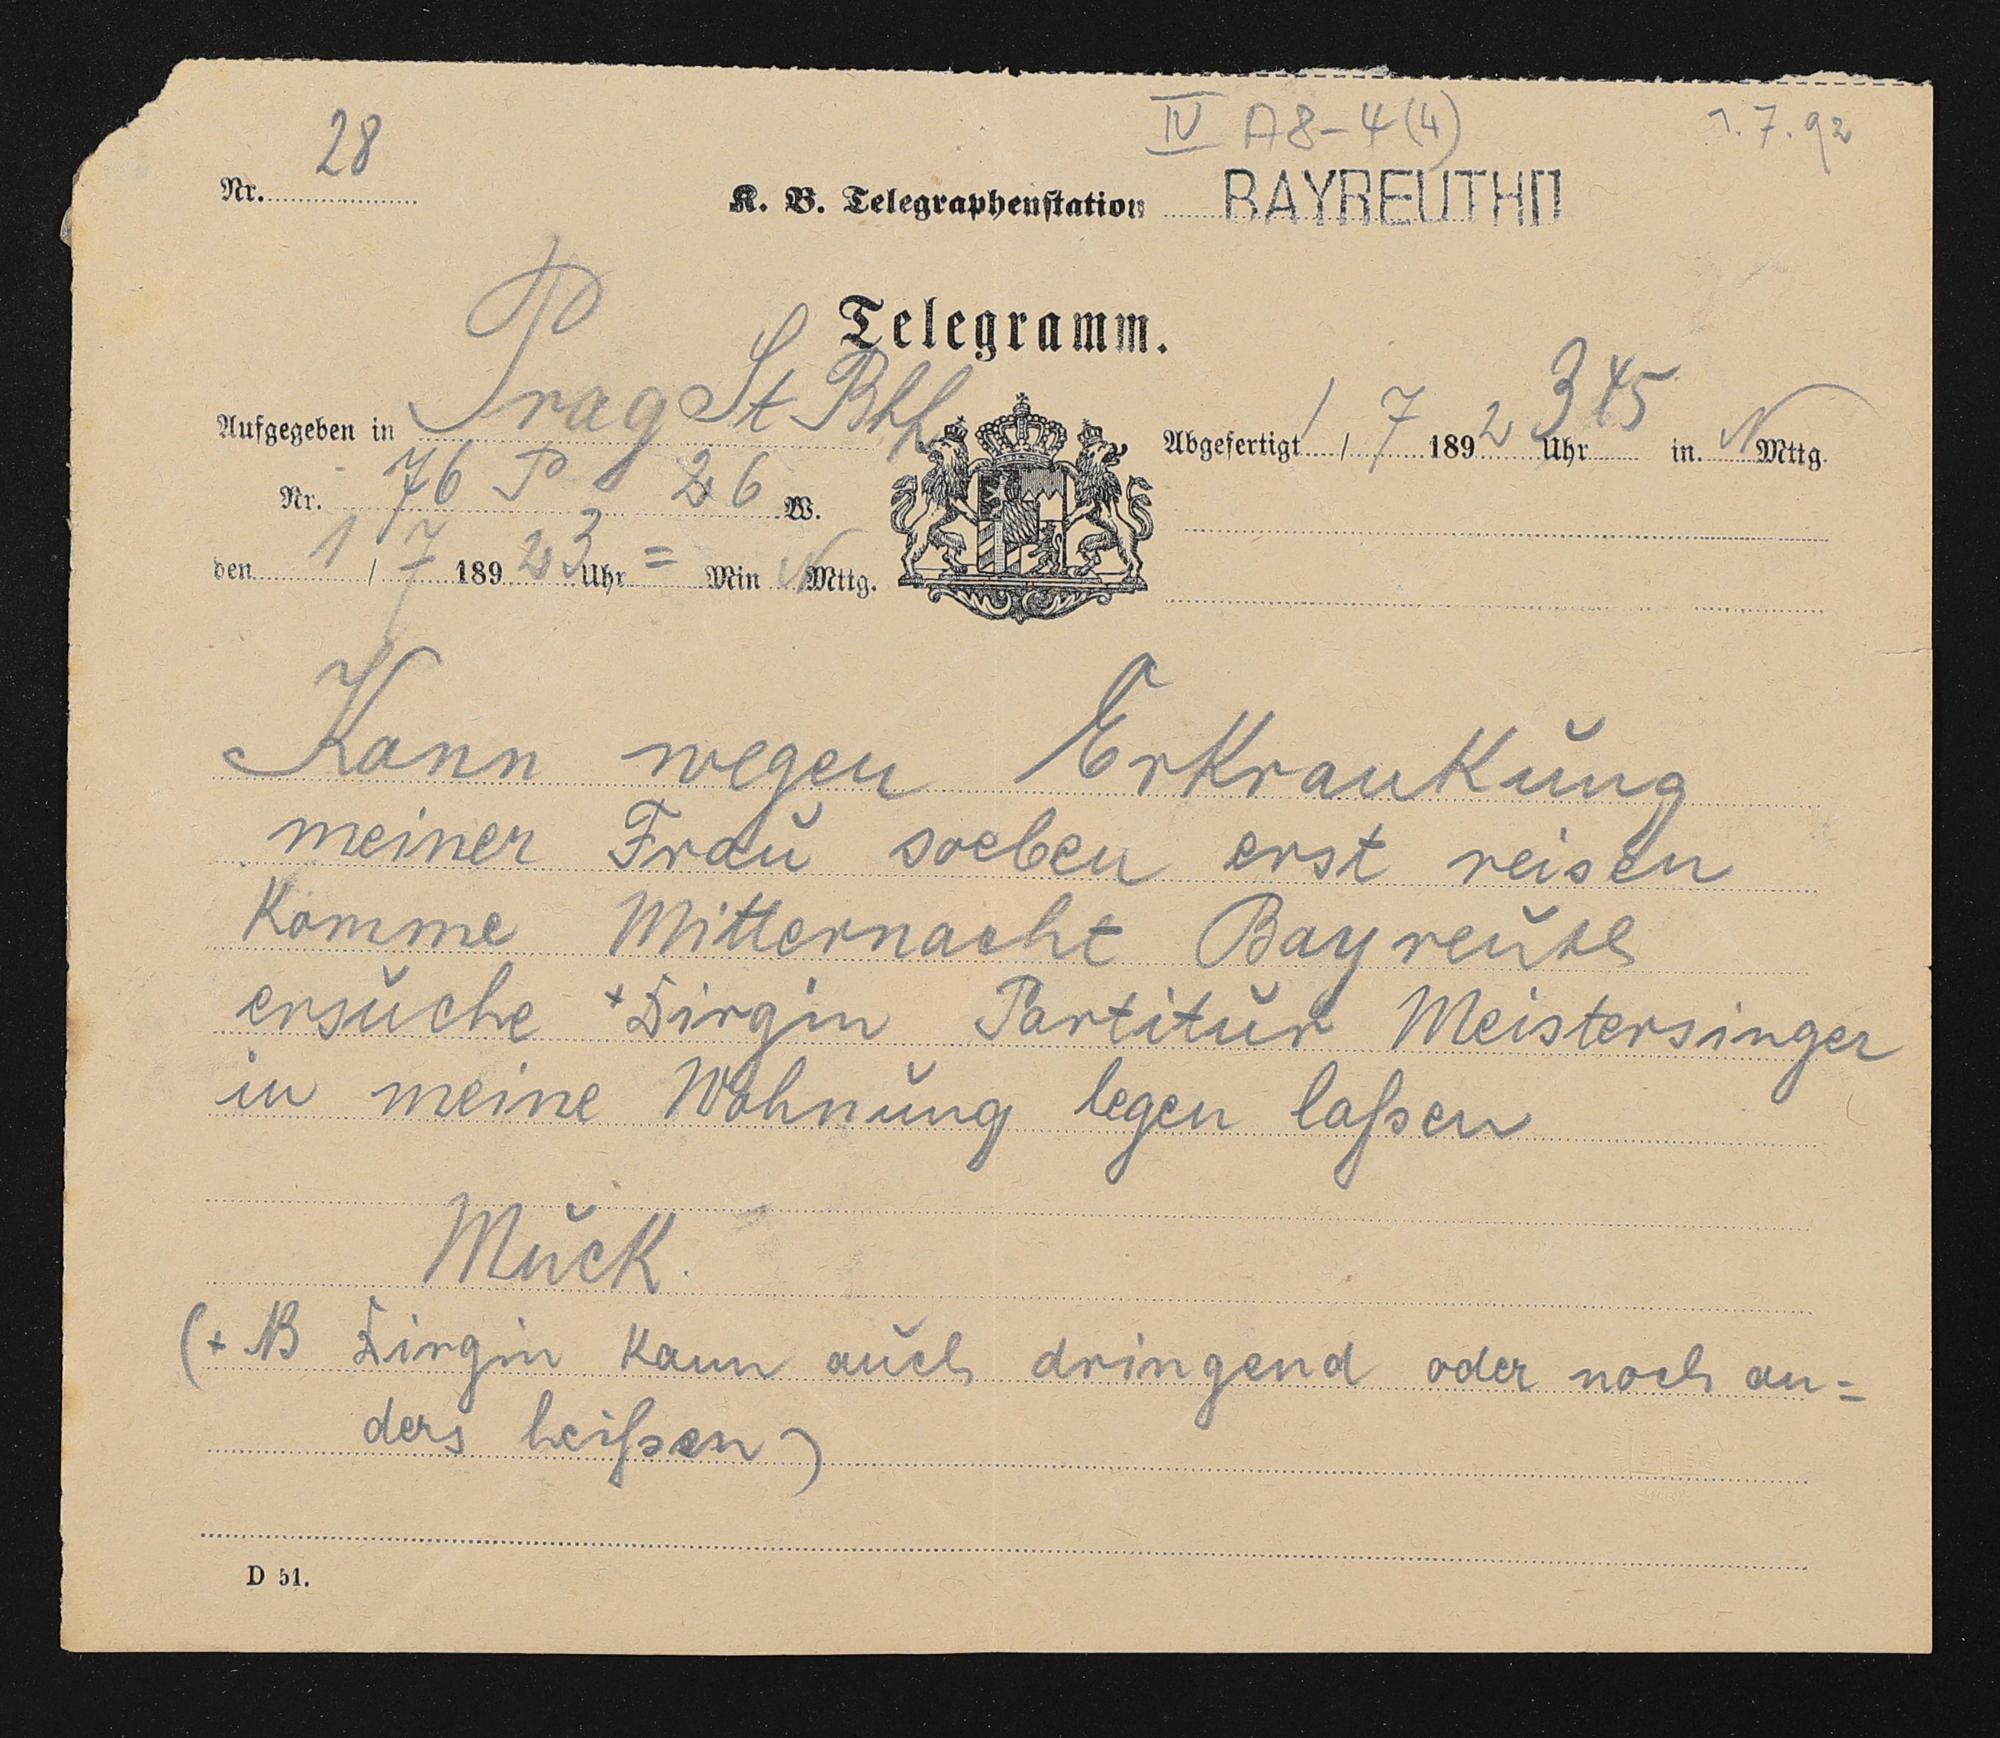 IV A8-4(4) 1.7.92
Nr. 28 K. B. Telegraphenstation BAYREUTH II
Telegramm.
Aufgegeben in Prag St Bhf Abgefertigt 1/7 1892 3 45 Uhr in. N Mttg.
Nr. 76 P 26 W.
den 1/7 1892 3 Uhr = Min N Mttg.
Kann wegen Erkrankung
meiner Frau soeben erst reisen
Komme Mitternacht Bayreuth
ersuche + Dirgin Partitur Meistersinger
in meine Wohnung legen laßen
Muck.
(+ NB Dirgin kann auch dringend oder noch an=
ders heißen)
D 51.